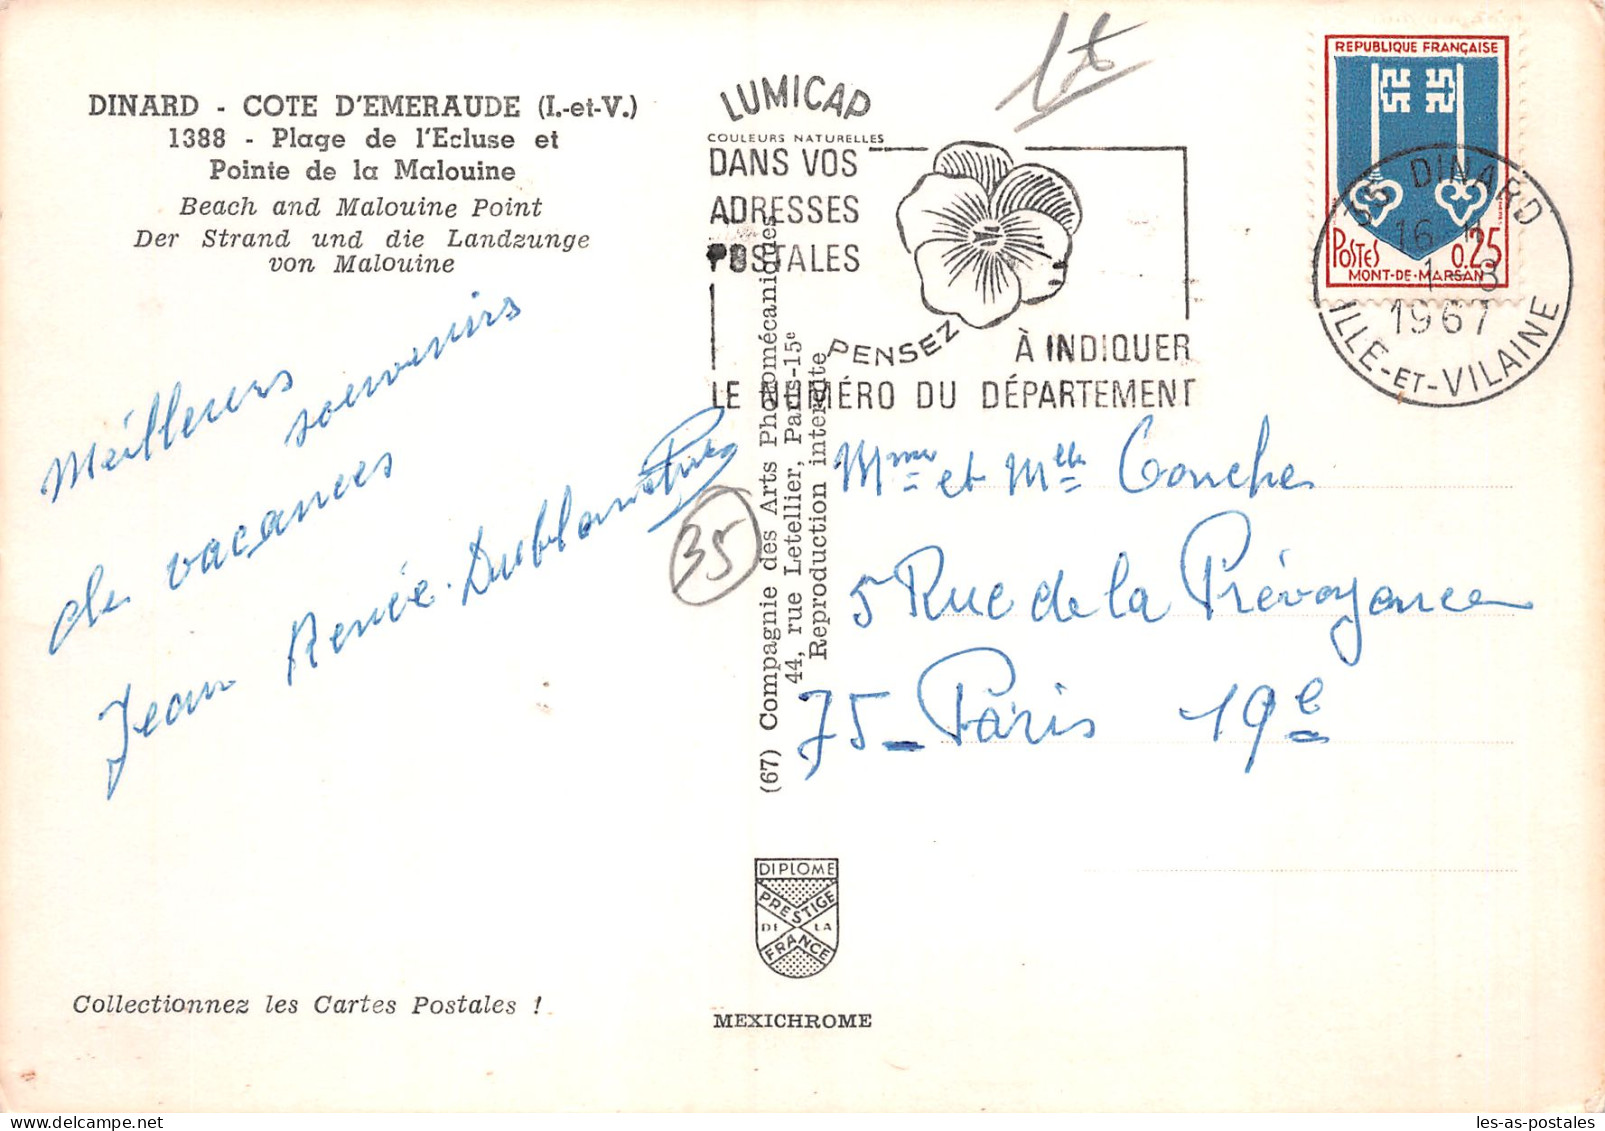 DINARD - COTE D'EMERAUDE (I.-et-V.)
1388 - Plage de l'Ecluse et
Pointe de la Malouine
Beach and Malouine Point
Der Strand und die Landzunge
von Malouine
Meilleurs
souvenirs
de vacances
Jean Renée
Collectionnez les Cartes Postales !
LUMICAP
COULEURS NATURELLES
DANS VOS
ADRESSES
POSTALES
PENSEZ
À INDIQUER
LE NUMÉRO DU DÉPARTEMENT
35
(67) Compagnie des Arts Photomécaniques
44, rue Letellier, Paris-15e
Reproduction interdite
DIPLOME
PRESTIGE
DE LA
FRANCE
MEXICHROME
REPUBLIQUE FRANÇAISE
POSTES 0.25
MONT-DE-MARSAN
35 DINARD
1-8
1967
ILLE-ET-VILAINE
Mme et Mlle Conches
5 Rue de la Prévoyance
75_Paris 19e
les-as-postales